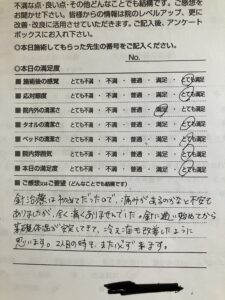 不満な点・良い点・その他どんなことでも結構です。ご感想を
お聞かせ下さい。皆様からの情報は院のレベルアップ、更に
改善・改良に活用させていただきます。ご記入後、アンケート
ボックスにお入れ下さい。
◎本日施術してもらった先生の番号をご記入ください。
No.
◎本日の満足度
■ 施術後の感覚 とても不満 ・ 不満 ・ 普通 ・ 満足 ・ とても満足
■ 応対態度 とても不満 ・ 不満 ・ 普通 ・ 満足 ・ とても満足
■ 院内外の清潔さ とても不満 ・ 不満 ・ 普通 ・ 満足 ・ とても満足
■ タオルの清潔さ とても不満 ・ 不満 ・ 普通 ・ 満足 ・ とても満足
■ ベッドの清潔さ とても不満 ・ 不満 ・ 普通 ・ 満足 ・ とても満足
■ 院内雰囲気 とても不満 ・ 不満 ・ 普通 ・ 満足 ・ とても満足
■ 本日の満足度 とても不満 ・ 不満 ・ 普通 ・ 満足 ・ とても満足
■ ご感想又はご要望(どんなことでも結構です)
針治療は初めてだったので、痛みがあるのかなと不安も
ありましたが、全く痛くありませんでした。針に通い始めてから
基礎体温が安定してきて、冷え性も改善したように
思います。2人目の時も、またぜひ来ます。